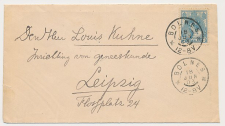 Den Heer Louis Kuhne
Inrichting van geneeskunde
Leipzig
Flossplatz 24
BOLNES
18
12-8V
BOLNES
18
12-8V